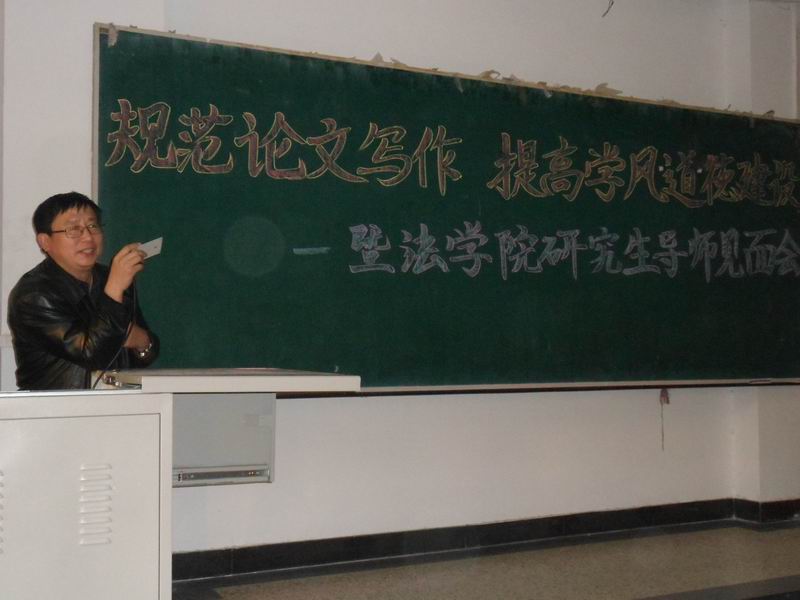 规范论文写作 提高学风道德建设
暨法学院研究生导师见面会